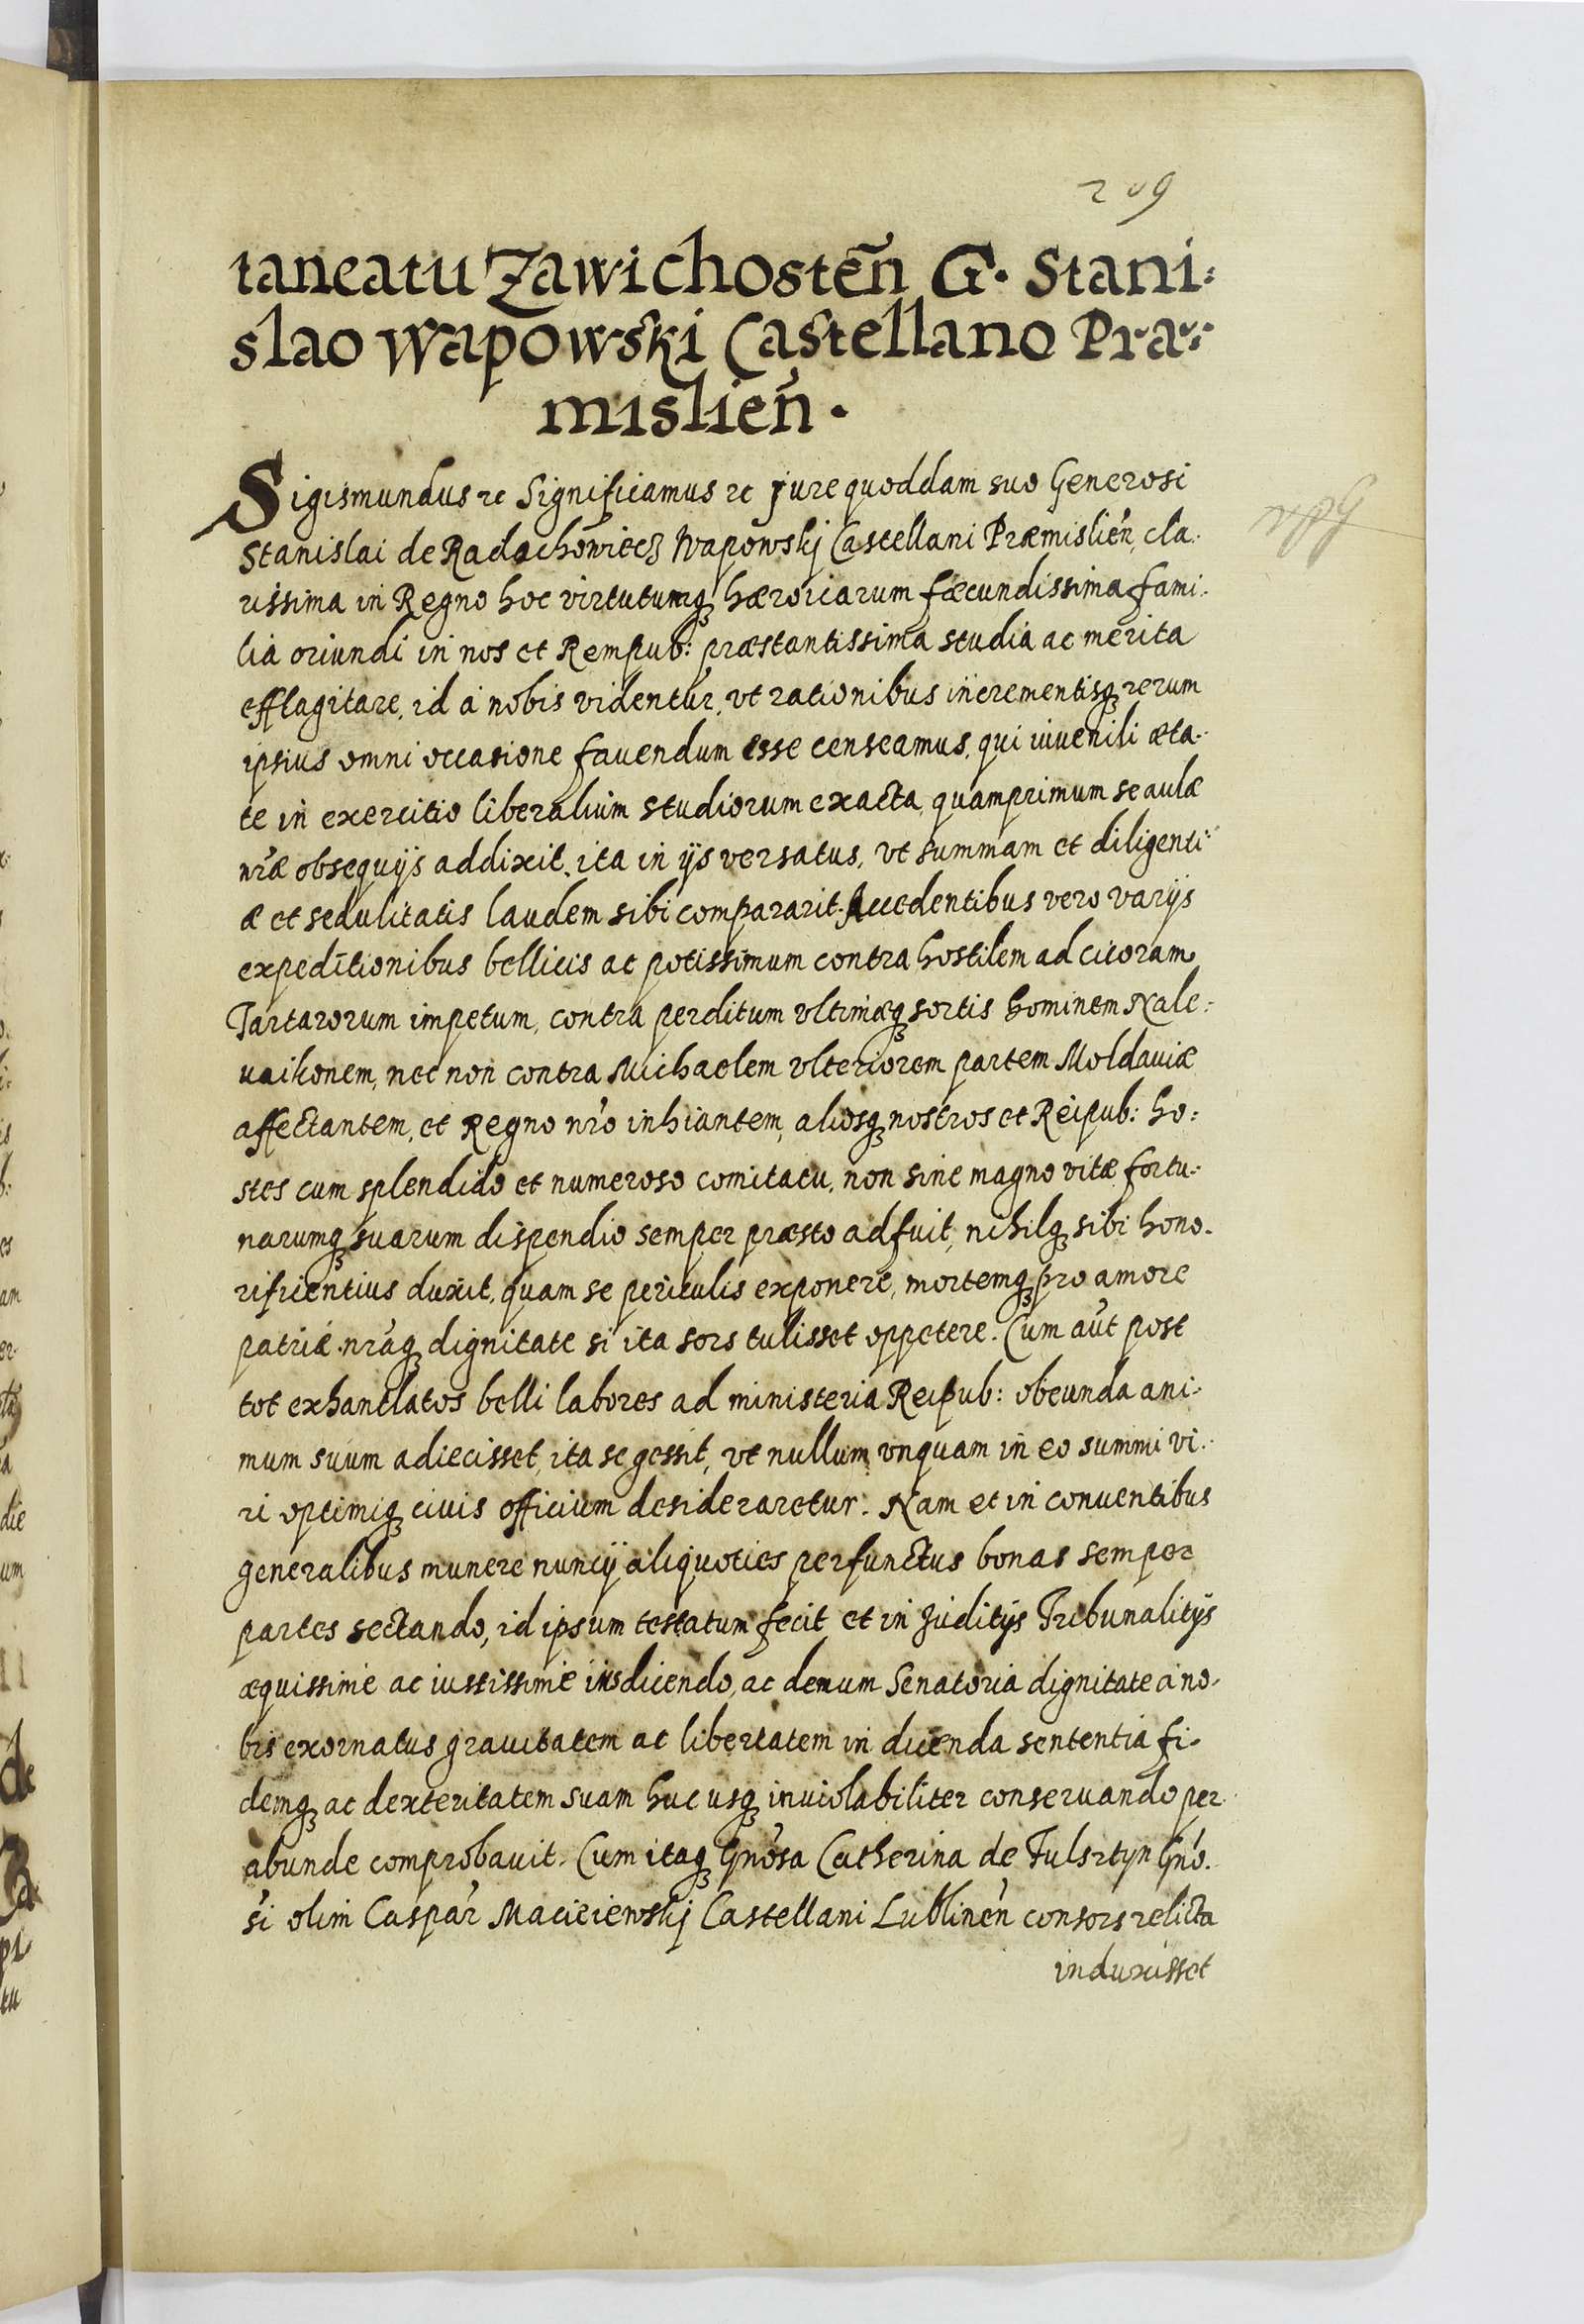 209
taneatu Zawichosteñ G. Stani:
slao Wapowski Castellano Præ:
mislień.
Sigismundus etc Significamus etc Jure quoddam suo Generosi
Stanislai de Radochowiecz Wapowskj Castellani Præmislień, cla-
rissima in Regno hoc virtutumq hæroicarum fæcundissima fami-
lia oriundi in nos et Rempub: præstantissima studia ac merita
efflagitare, id a nobis videntur, vt rationibus incrementisq rerum
ipsius omni occasione fauendum esse censeamus, qui iuuenili æta-
te in exercitio liberalium studiorum exacta, quamprimum se aulæ
nræ obsequijs addixit, ita in ijs versatus, vt summam et diligenti-
æ et sedulitatis laudem sibi compararit. Accedentibus vero varijs
expeditionibus bellicis ac potissimum contra hostilem ad Cicoram
Tartarorum impetum, contra perditum vltimæq sortis hominem Nale:
uaikonem, nec non contra Michaelem vlteriorem partem Moldauiæ
affectantem, et Regno nro inhiantem, aliosq nostros et Reipub: ho:
stes cum splendido et numeroso comitatu, non sine magno vitæ fortu-
narumq suarum dispendio semper præsto adfuit, nihilq sibi hono-
rificentius duxit, quam se periculis exponere, mortemq pro amore
patriæ nraq dignitate si ita sors tulisset oppetere. Cum aut post
tot exhantlatos belli labores ad ministeria Reipub: obeunda ani-
mum suum adiecisset, ita se gessit, vt nullum vnquam in eo summi vi-
ri optimiq ciuis officium desideraretur. Nam et in conuentibus
generalibus munere nuncij aliquoties perfunctus bonas semper
partes sectando, id ipsum testatum fecit et in Juditijs Tribunalitijs
æquissime ac iustissime iusdicendo, ac demum Senatoria dignitate a no-
bis exornatus grauitatem ac libertatem in dicenda sententia fi-
demq ac dexteritatem suam huc usq inuiolabiliter conseruando per-
abunde comprobauit. Cum itaq Gnosa Catherina de Fulsztyn Gno-
si olim Caspar Macieiewskj Castellani Lublineń consors relicta
induxisset